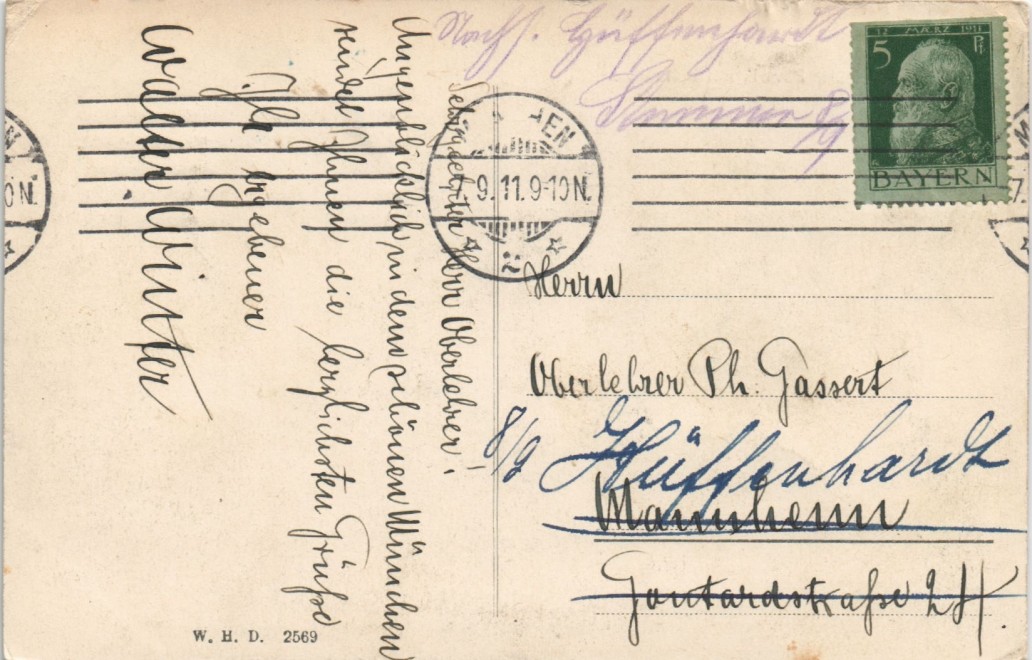 Nach Hüffenhardt
8/9
12. MÄRZ 1911
5 Pf
BAYERN
9.11.9-10N.
Sehr geehrter Herr Oberlehrer!
Augenblicklich in dem schönen München
sendet Ihnen die herzlichsten Grüße
Ihr ergebener
Walter Winter
Herrn
Oberlehrer Ph. Gassert
8/9 Hüffenhardt
Mannheim
Gontardstraße 24
W. H. D. 2569